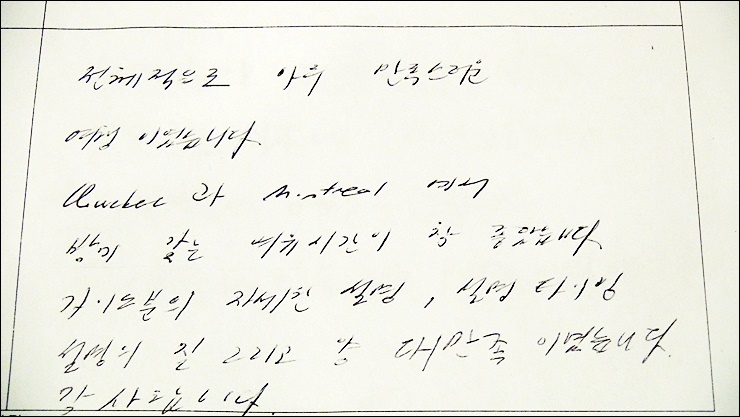 전체적으로 아주 만족스러운
여행 이었습니다.
Quebec 과 Montreal 에서
밤에 갖는 여유시간이 참 좋았습니다
가이드분의 자세한 설명, 설명 타이밍
설명의 질 그리고 등 대만족 이었습니다.
감사합니다